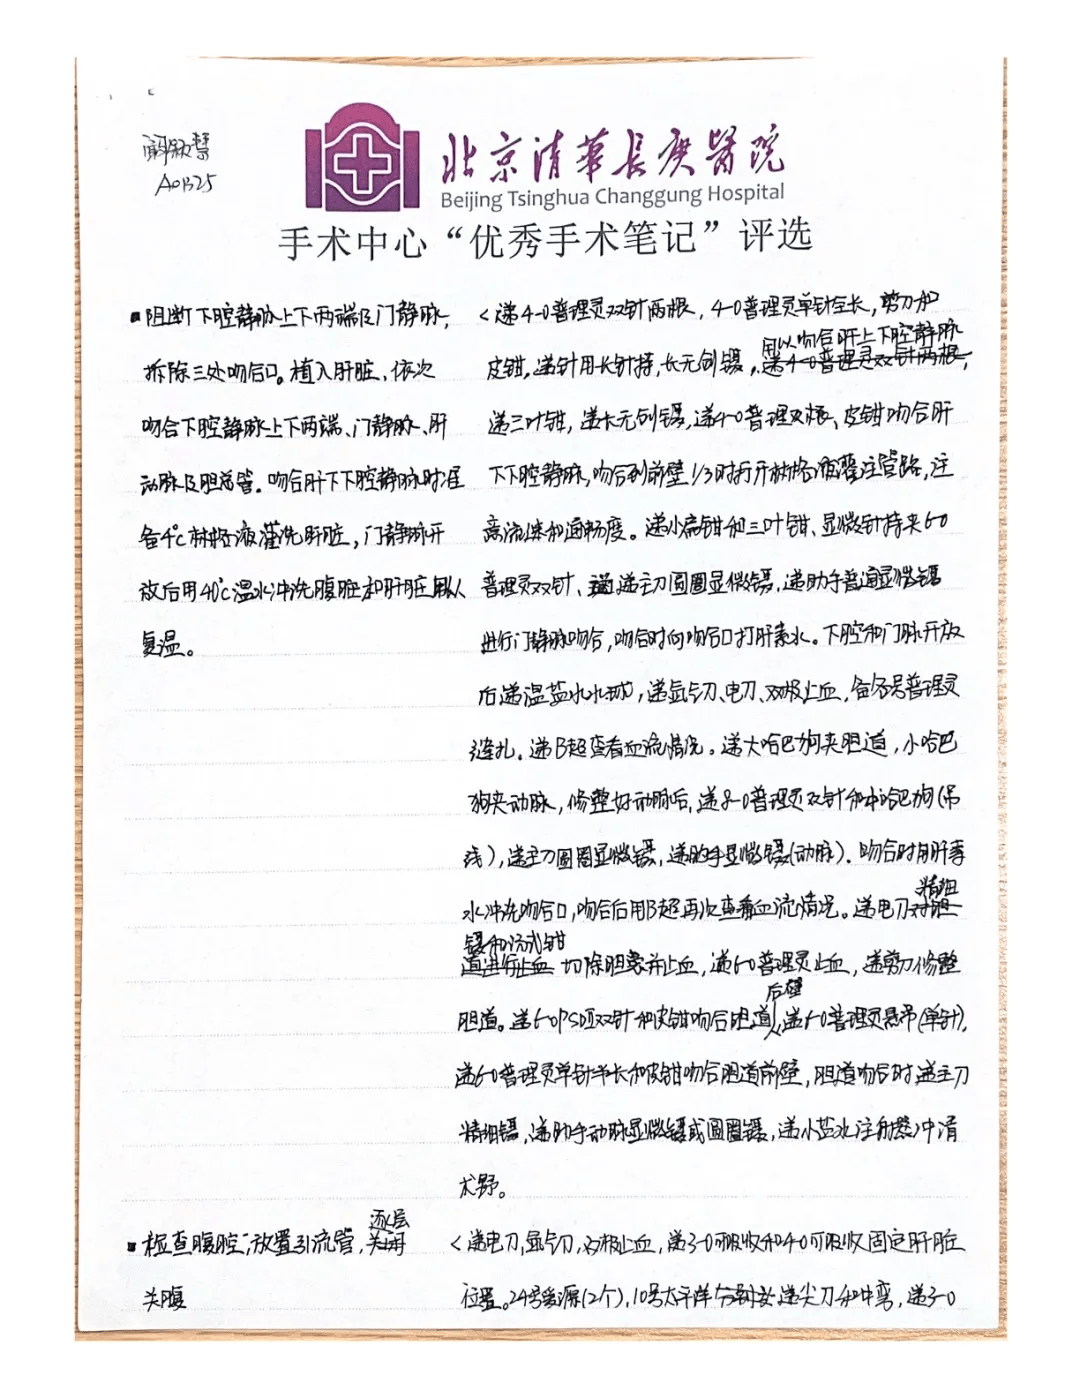 A01325
北京清華長庚醫院
Beijing Tsinghua Changgung Hospital
手术中心“优秀手术笔记”评选
▪阻断下腔静脉上下两端及门静脉,
拆除三处吻合口。植入肝脏、依次
吻合下腔静脉上下两端、门静脉、肝
动脉及胆总管。吻合肝下下腔静脉时准
备4℃林格液灌洗肝脏，门静脉开
放后用40℃温水冲洗腹腔和肝脏以
复温。
<递4-0普理灵双针两根，4-0普理灵单针全长，剪刀和
用以吻合肝上下腔静脉
皮钳，递针用长针持，长无创镊，递4-0普理灵双针两根，
递三叶钳，递长无创镊，递4-0普理双根、皮钳吻合肝
下下腔静脉，吻合到前壁1/3时打开林格液灌注管路，注
意流速和通畅度。递小扁钳和三叶钳、显微针持夹6-0
普理灵双针、递主刀圆圈显微镊，递助手普通显微镊
进行门静脉吻合，吻合时向吻合口打肝素水。下腔和门脉开放
后递温盐水水球，递氩气刀、电刀、双极止血，备各号普理灵
缝扎。递B超查看血流情况。递大哈巴狗夹胆道，小哈巴
狗夹动脉，修整好动脉后，递8-0普理灵双针和哈巴狗(吊
线)，递主刀圆圈显微镊，递助手显微镊(动脉)。吻合时用肝素
水冲洗吻合口，吻合后用B超再次查看血流情况。递电刀对胆
精细
镊和汤式钳
道进行止血 切除胆囊并止血，递6-0普理灵止血，递剪刀修整
后壁
胆道。递6-0PSDⅡ双针和皮钳吻合胆道，递6-0普理灵悬吊(单针)，
递6-0普理灵单针半长和皮钳吻合胆道前壁，胆道吻合时，递主刀
精细镊，递助手动脉显微镊或圆圈镊，递小盐水注射器冲清
术野。
▪检查腹腔，放置引流管，
逐层
关腹
<递电刀，氩气刀，双极止血，递3-0可吸收和4-0可吸收固定肝脏
位置。24号爱源(2个)，10号太平洋 递尖刀和中弯，递3-0